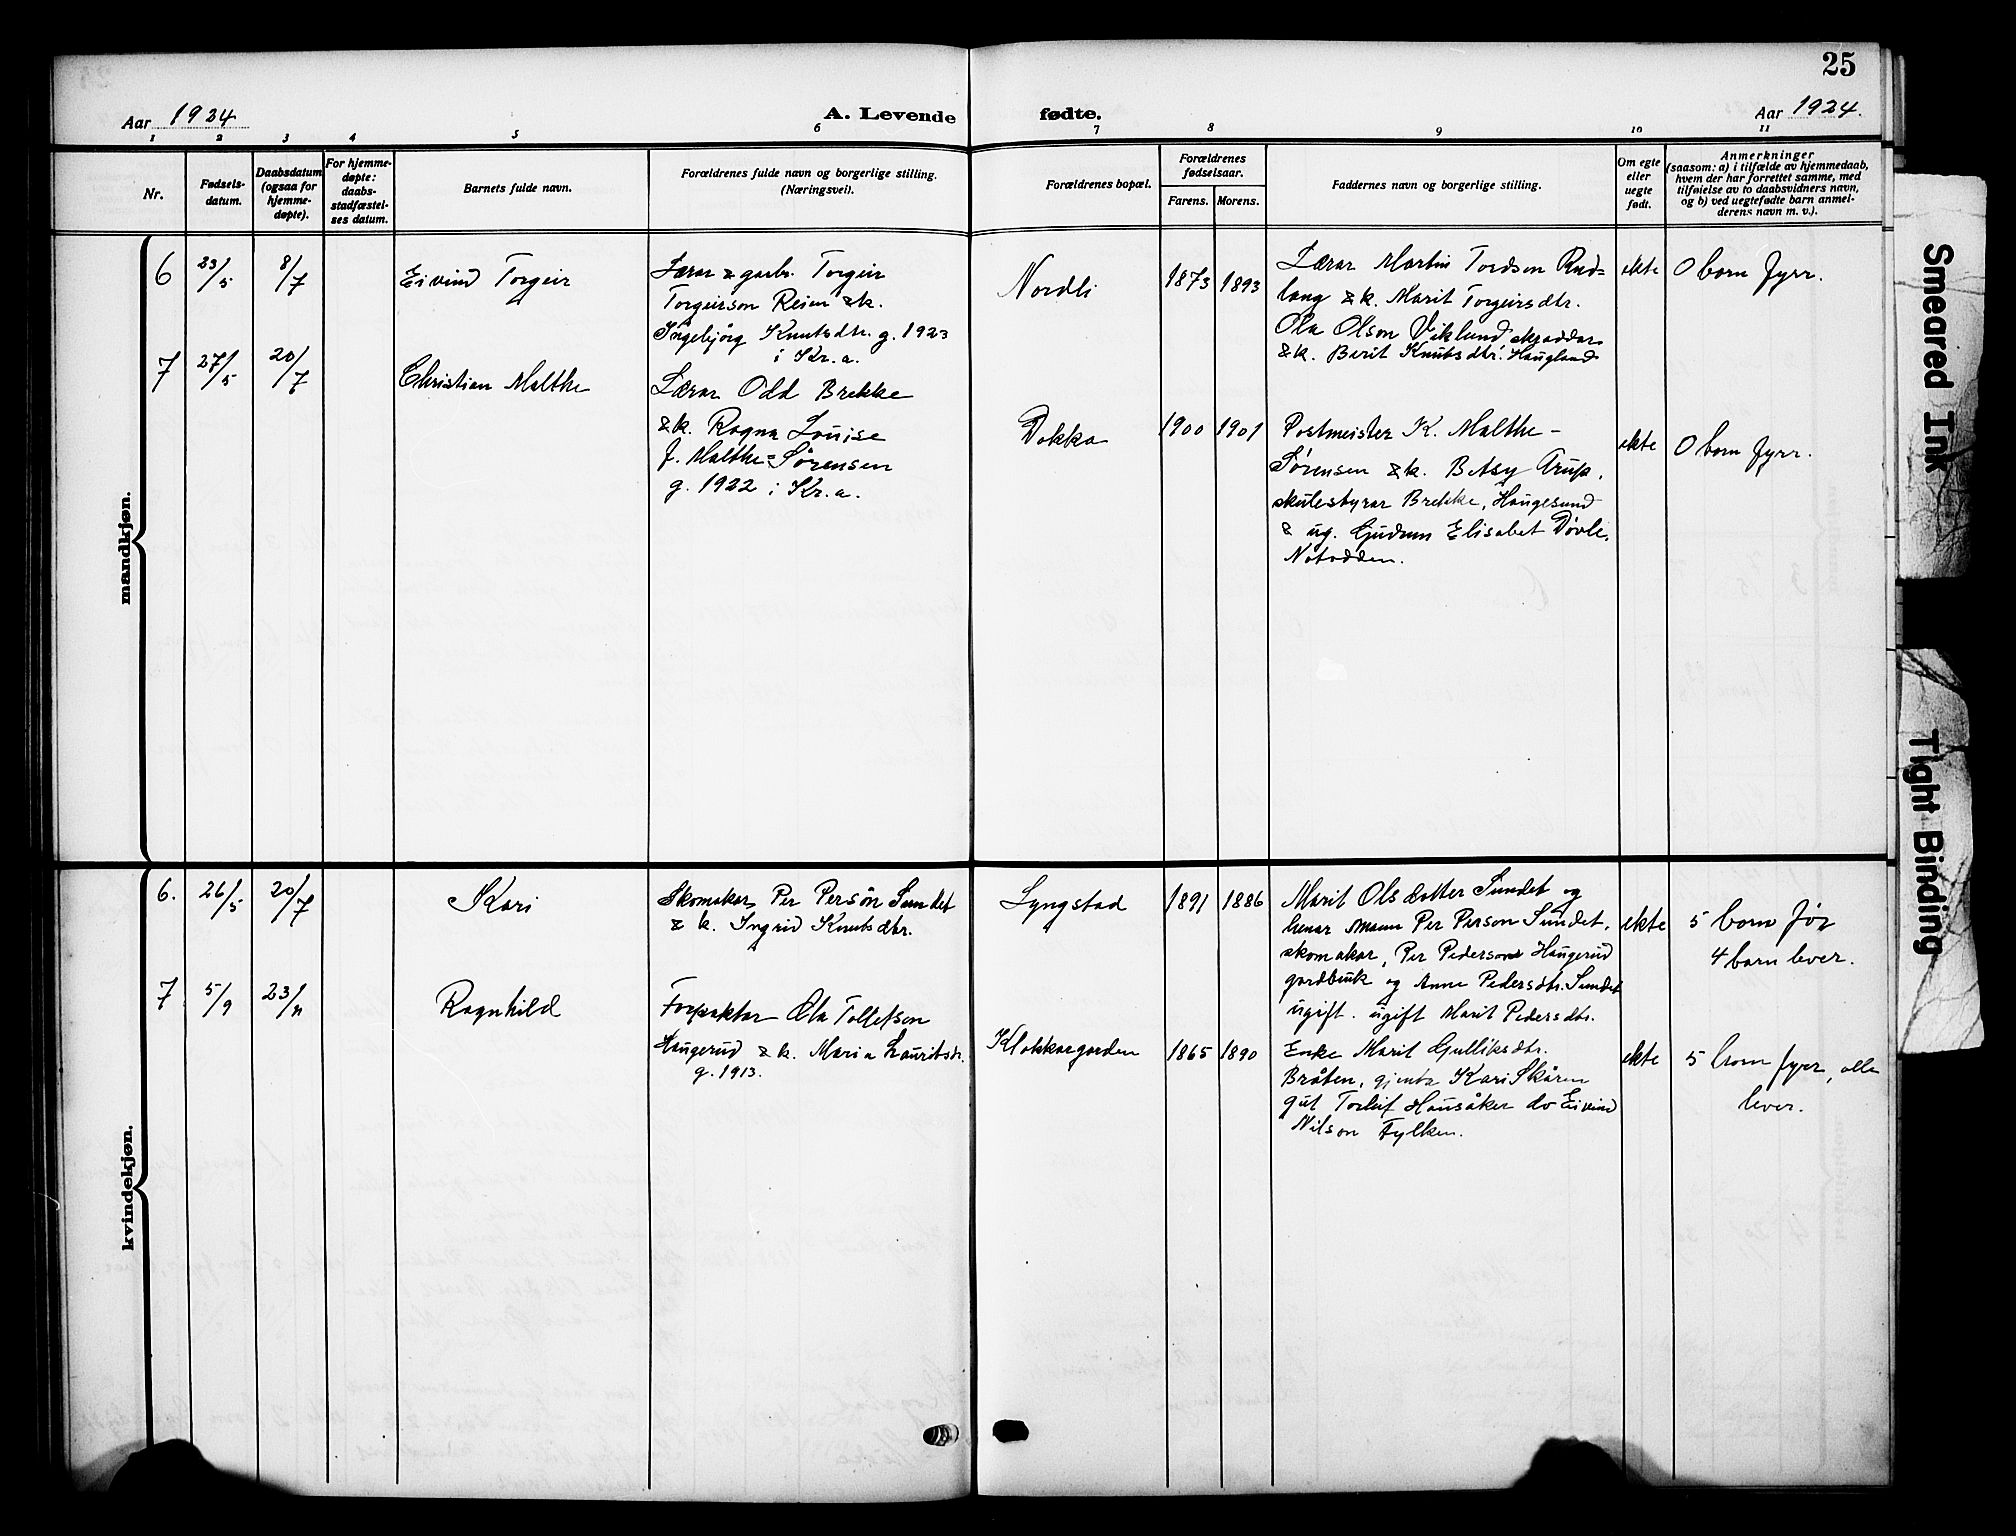 25
Aar 1924
A. Levende
fødte.
Aar 1924.
1 2 3 4 5 6 7 8 9 10 11
Nr.
Fødsels-
datum.
Daabsdatum
(ogsaa for
hjemme-
døpte).
For hjemme-
døpte:
daabs-
stadfæstel-
ses datum.
Barnets fulde navn.
Forældrenes fulde navn og borgerlige stilling.
(Næringsvei).
Forældrenes bopæl.
Forældrenes
fødselsaar.
Farens. Morens.
Faddernes navn og borgerlige stilling.
Om egte
eller
uegte
født.
Anmerkninger
(saasom: a) i tilfælde av hjemmedaab,
hvem der har forrettet samme, med
tilføielse av to daabsvidners navn,
og b) ved uegtefødte barn anmel-
derens navn m. v.).
mandkjøn.
6
23/5
8/7
Eivind Torgeir
Lærar & gardbr. Torgeir
Torgeirson Reien & k.
Ingebjörg Knutsdtr. g. 1923
i Kr.a.
Nordli
1873
1893
Lærar Martin Tordson Rud=
lang & k. Marit Torgeirsdtr.
Ola Olson Viklund skræddar
& k. Berit Knutsdtr. Haugland
ekte
0 born fyrr.
7
27/5
20/7
Christian Malthe
Lærar Odd Brekke
& k. Ragna Louise
f. Malthe=Sörensen
g. 1922 i Kr.a.
Dokka
1900
1901
Postmeister K. Malthe-
Sörensen & k. Betsy Arup,
skulestyrar Brekke, Haugesund
& ug. Gudrun Elisabet Dövle,
Notodden.
ekte
0 born fyrr.
kvindekjøn.
6.
26/5
20/7
Kari
Skomakar Per Persön Sundet
& k. Ingrid Knutsdtr.
Lyngstad
1891
1886
Marit Olsdotter Sundet og
henar mann Per Person Sundet,
skomakar, Per Pederson Haugerud
gardbruk og Anne Pedersdtr. Sundet
ugift. ugift Marit Pedersdtr.
ekte
5 born för
4 born lever.
7
5/9
23/11
Ragnhild
Forpaktar Ola Tollefson
Haugerud & k. Maria Lauritsdr.
g. 1913.
Klokkargarden
1865
1890
Enke Marit Gulliksdtr.
Bråten, gjenta Kari Skåren
gut Torleif Hansåker do Eivind
Nilson Fylken.
ekte
5 born fyrr, alle
lever.
Smeared Ink
Tight Binding